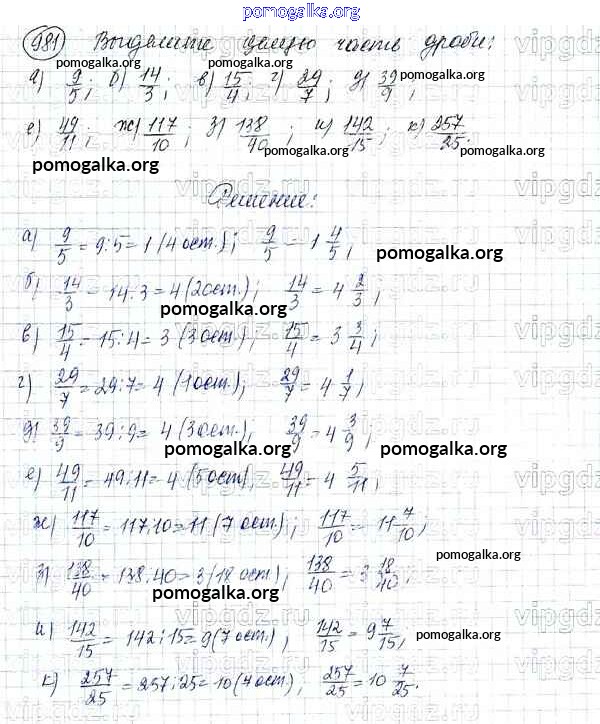 pomogalka.org
981 Выделите целую часть дроби:
а) 9/5; б) 14/3; в) 15/4; г) 29/7; д) 39/9
pomogalka.org pomogalka.org
е) 49/11; ж) 117/10; з) 138/40; и) 142/15; к) 257/25.
pomogalka.org pomogalka.org pomogalka.org
Решение:
а) 9/5 = 9:5 = 1 (4 ост.); 9/5 = 1 4/5;
pomogalka.org
б) 14/3 = 14:3 = 4 (2 ост.); 14/3 = 4 2/3;
pomogalka.org
в) 15/4 = 15:4 = 3 (3 ост.); 15/4 = 3 3/4;
pomogalka.org
г) 29/7 = 29:7 = 4 (1 ост.); 29/7 = 4 1/7;
pomogalka.org
д) 39/9 = 39:9 = 4 (3 ост.); 39/9 = 4 3/9;
pomogalka.org pomogalka.org
е) 49/11 = 49:11 = 4 (5 ост.); 49/11 = 4 5/11;
ж) 117/10 = 117:10 = 11 (7 ост.); 117/10 = 11 7/10;
pomogalka.org
з) 138/40 = 138:40 = 3 (18 ост.); 138/40 = 3 18/40;
и) 142/15 = 142:15 = 9 (7 ост.); 142/15 = 9 7/15;
pomogalka.org
к) 257/25 = 257:25 = 10 (7 ост.); 257/25 = 10 7/25.